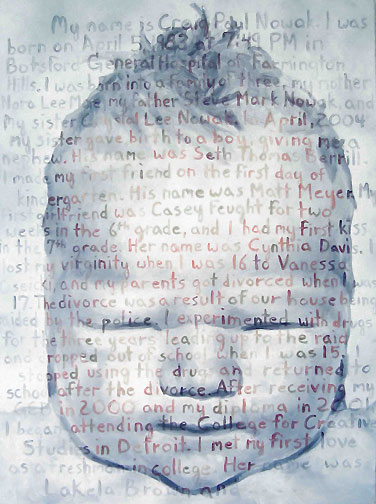 My name is Craig Paul Nowak. I was
born on April 5, 1983 at 7:49 PM in
Botsford General Hospital of Farmington
Hills. I was born into a family of three, my mother
Nora Lee Moe my father Steve Mark Nowak, and
My sister Lee Nowak. In April, 2004
my sister gave birth to a boy, giving me a
nephew. His name was Seth Thomas Berrill.
I made my first friend on the first day of
kindergarten. His name was Matt Meyer. My
first girlfriend was Casey Feught for two
weeks in the 6th grade, and I had my first kiss
in the 7th grade. Her name was Cynthia Davis. I
lost my virginity when I was 16 to Vanessa
and my parents got divorced when I was
17. The divorce was a result of our house being
raided by the police. I experimented with drugs
for the three years leading up to the raid
and dropped out of school when I was 15. I
stopped using the drugs and returned to
school after the divorce. After receiving my
GED in 2000 and my diploma in 2001
I began attending the College for Creative
Studies in Detroit. I met my first love
as a freshman in college. Her name was
Lakela Brown